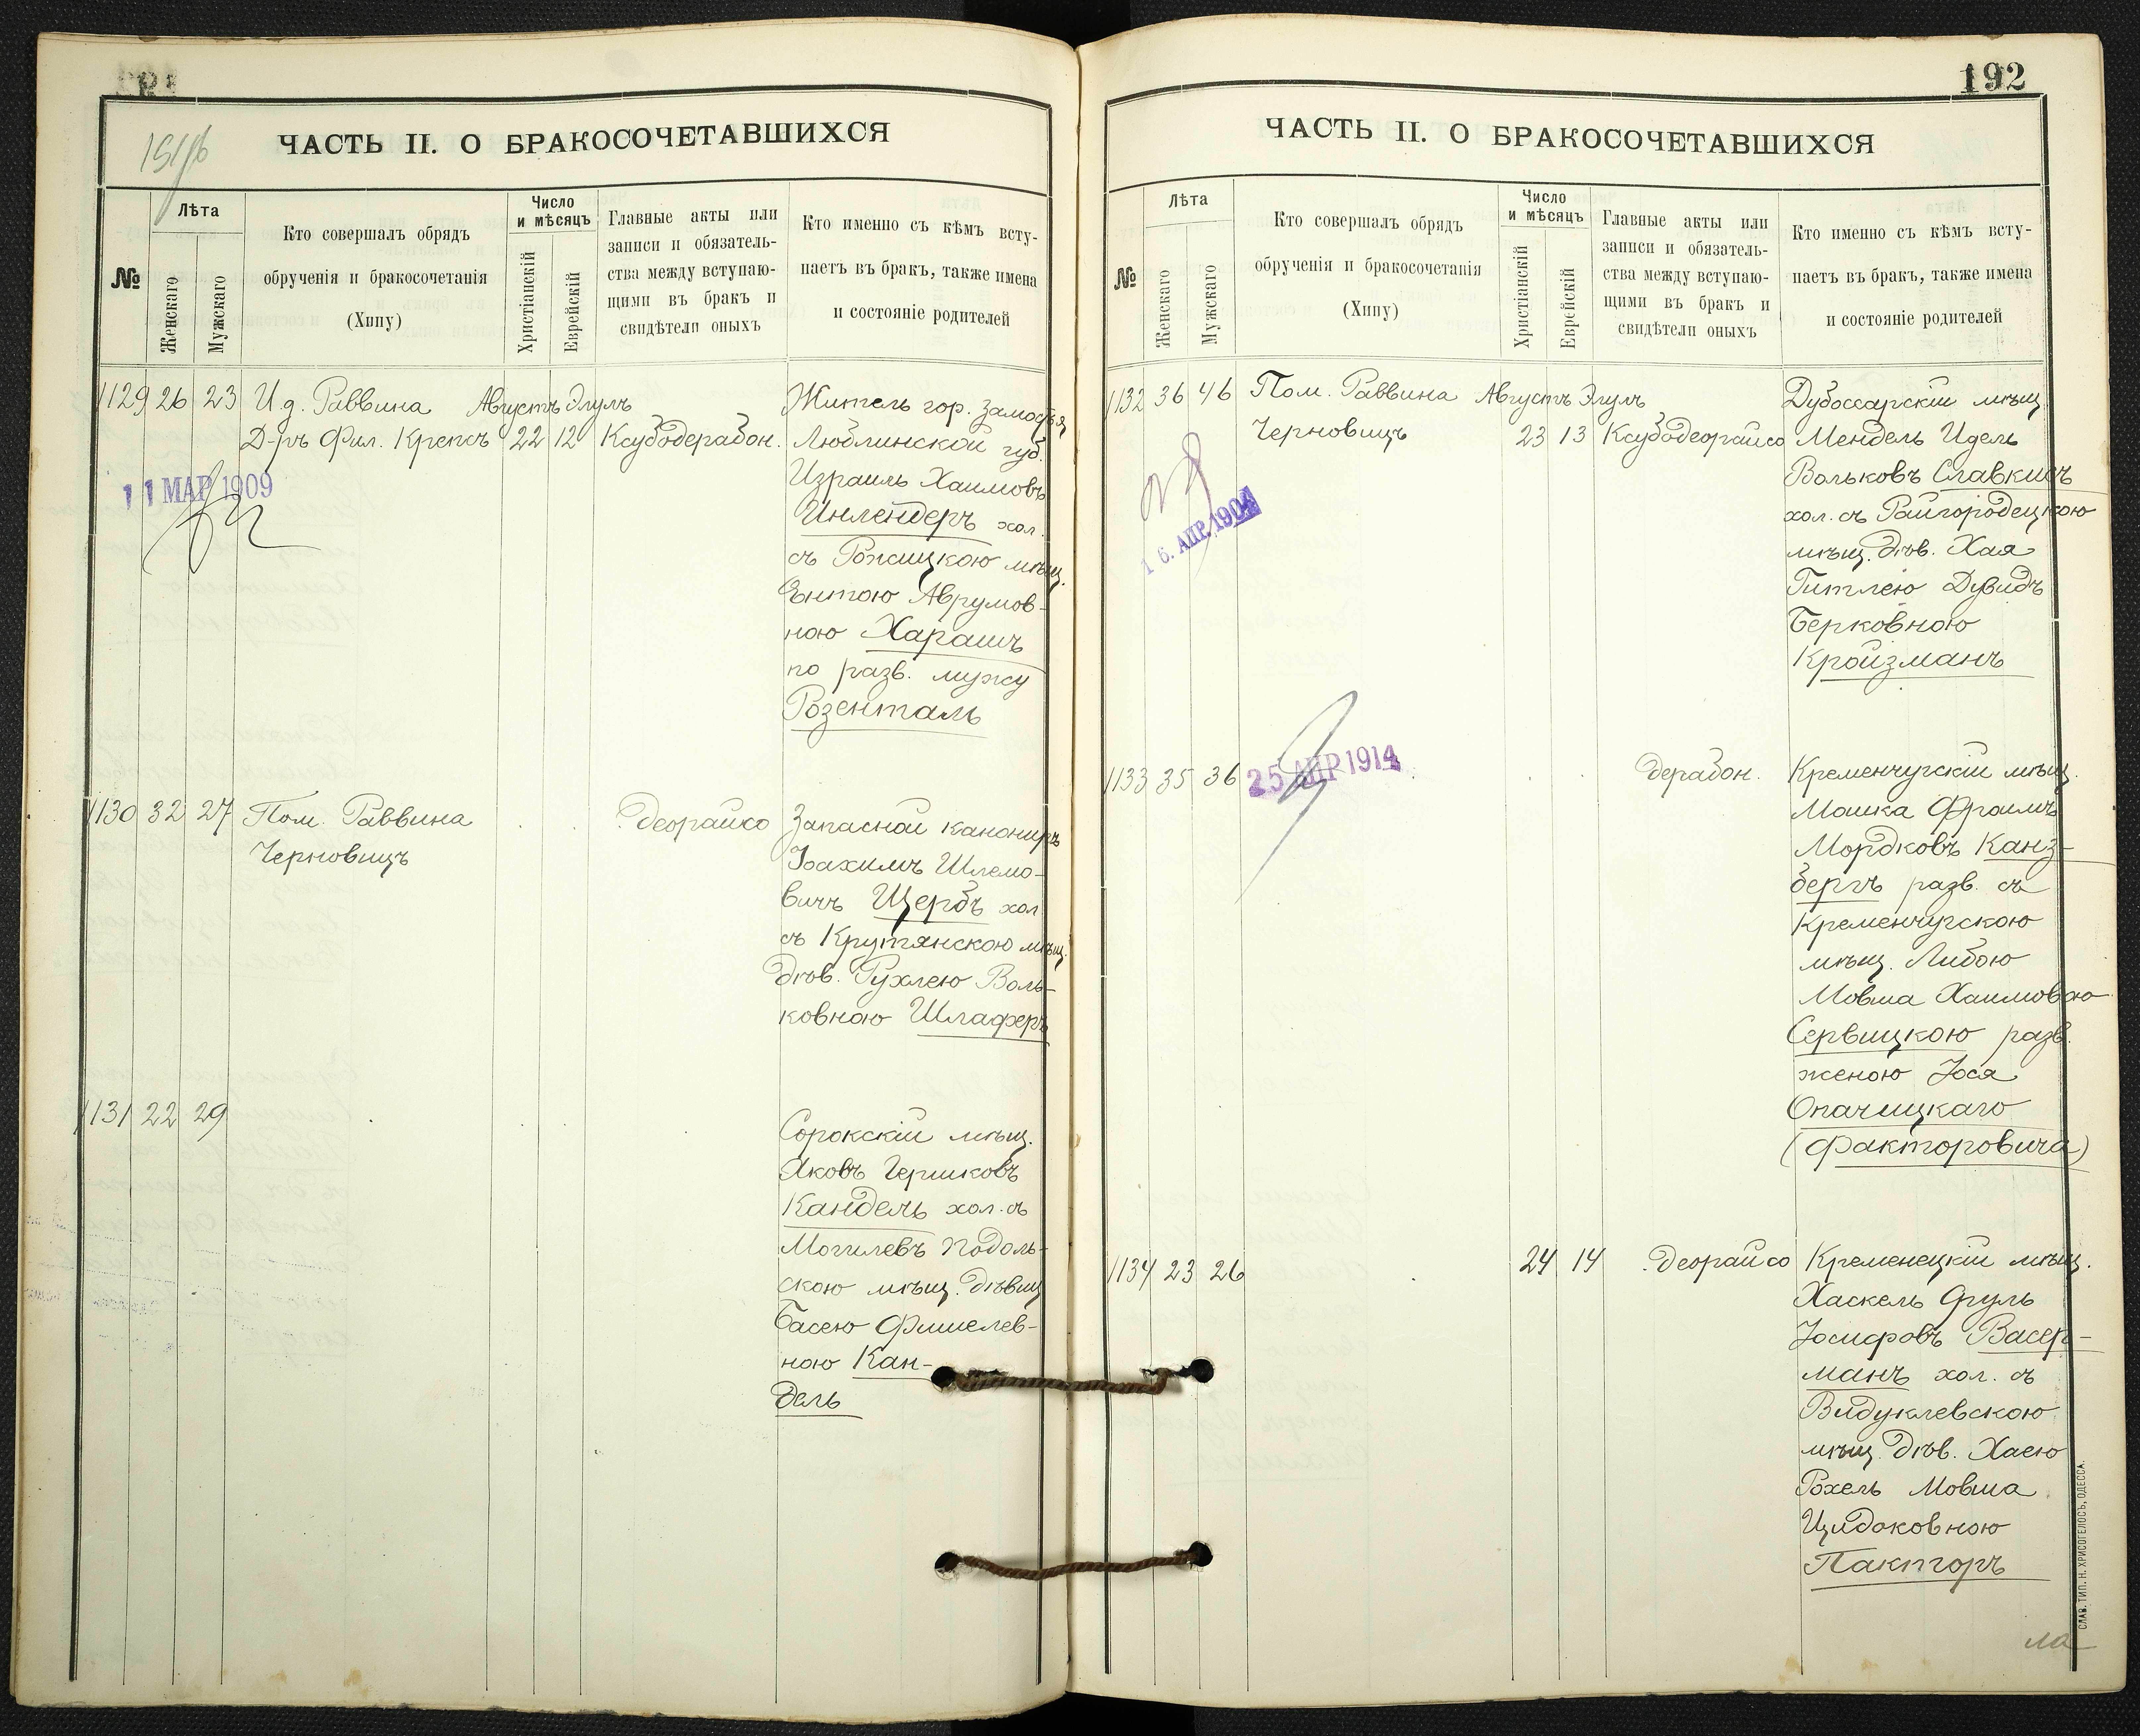 ЧАСТЬ II. О БРАКОСОЧЕТАВШИХСЯ
№
Лѣта
Женскаго
Мужскаго
Кто совершалъ обрядъ
обрученія и бракосочетанія
(Хипу)
Число
и мѣсяцъ
Христіанскій
Еврейскій
Главные акты или
записи и обязатель-
ства между вступаю-
щими въ бракъ и
свидѣтели оныхъ
Кто именно съ кѣмъ всту-
паетъ въ бракъ, также имена
и состояніе родителей
1129 26 23 И.д. Раввина Августъ Элулъ
Д-ръ Фил. Крепсъ 22 12 Ксубодерабон.
11 МАР 1909
Житель гор. Замостья
Люблинской губ.
Израиль Хаимовъ
Инлендеръ хол.
съ Рожицкою мѣщ.
Ентою Аврумов-
ною Харашъ
по разв. мужу
Розенталь
1130 32 27 Пом. Раввина деорайсо
Черновицъ
Запасной канониръ
Іоахимъ Шлемо-
вичъ Щербъ хол.
съ Крутянскою мѣщ.
дѣв. Рухлею Воль-
ковною Шлаферъ
1131 22 29
Сорокскій мѣщ.
Яковъ Гершковъ
Кандель хол. съ
Могилевъ Подоль-
скою мѣщ. дѣвиц
Басею Фишелев-
ною Кан-
дель
192
ЧАСТЬ II. О БРАКОСОЧЕТАВШИХСЯ
№
Лѣта
Женскаго
Мужскаго
Кто совершалъ обрядъ
обрученія и бракосочетанія
(Хипу)
Число
и мѣсяцъ
Христіанскій
Еврейскій
Главные акты или
записи и обязатель-
ства между вступаю-
щими въ бракъ и
свидѣтели оныхъ
Кто именно съ кѣмъ всту-
паетъ въ бракъ, также имена
и состояніе родителей
1132 36 46 Пом. Раввина Августъ Элулъ
Черновицъ 23 13 Ксубодеорайсо
16. АПР. 1904
Дубоссарскій мѣщ.
Мендель Идель
Вольковъ Славкисъ
хол. съ Райгородецкою
мѣщ. дѣв. Хая
Гитлею Дувидъ
Берковною
Кройзманъ
1133 35 36 дерабон.
25 АПР 1914
Кременчугскій мѣщ.
Мошка Фроимъ
Мордковъ Канз-
бергъ разв. съ
Кременчугскою
мѣщ. Либою
Мовша Хаимовою
Сервицкою разв.
женою Іося
Опачицкаго
(Факторовича)
1134 23 26 24 14 деорайсо
Кременецкій мѣщ.
Хаскель Сруль
Іосифовъ Васер-
манъ хол. съ
Видуклевскою
мѣщ. дѣв. Хаею
Рохель Мовша
Цидоковною
Пакторъ
СЛАВ. ТИП. Н. ХРИСОГЕЛОСЪ, ОДЕССА.